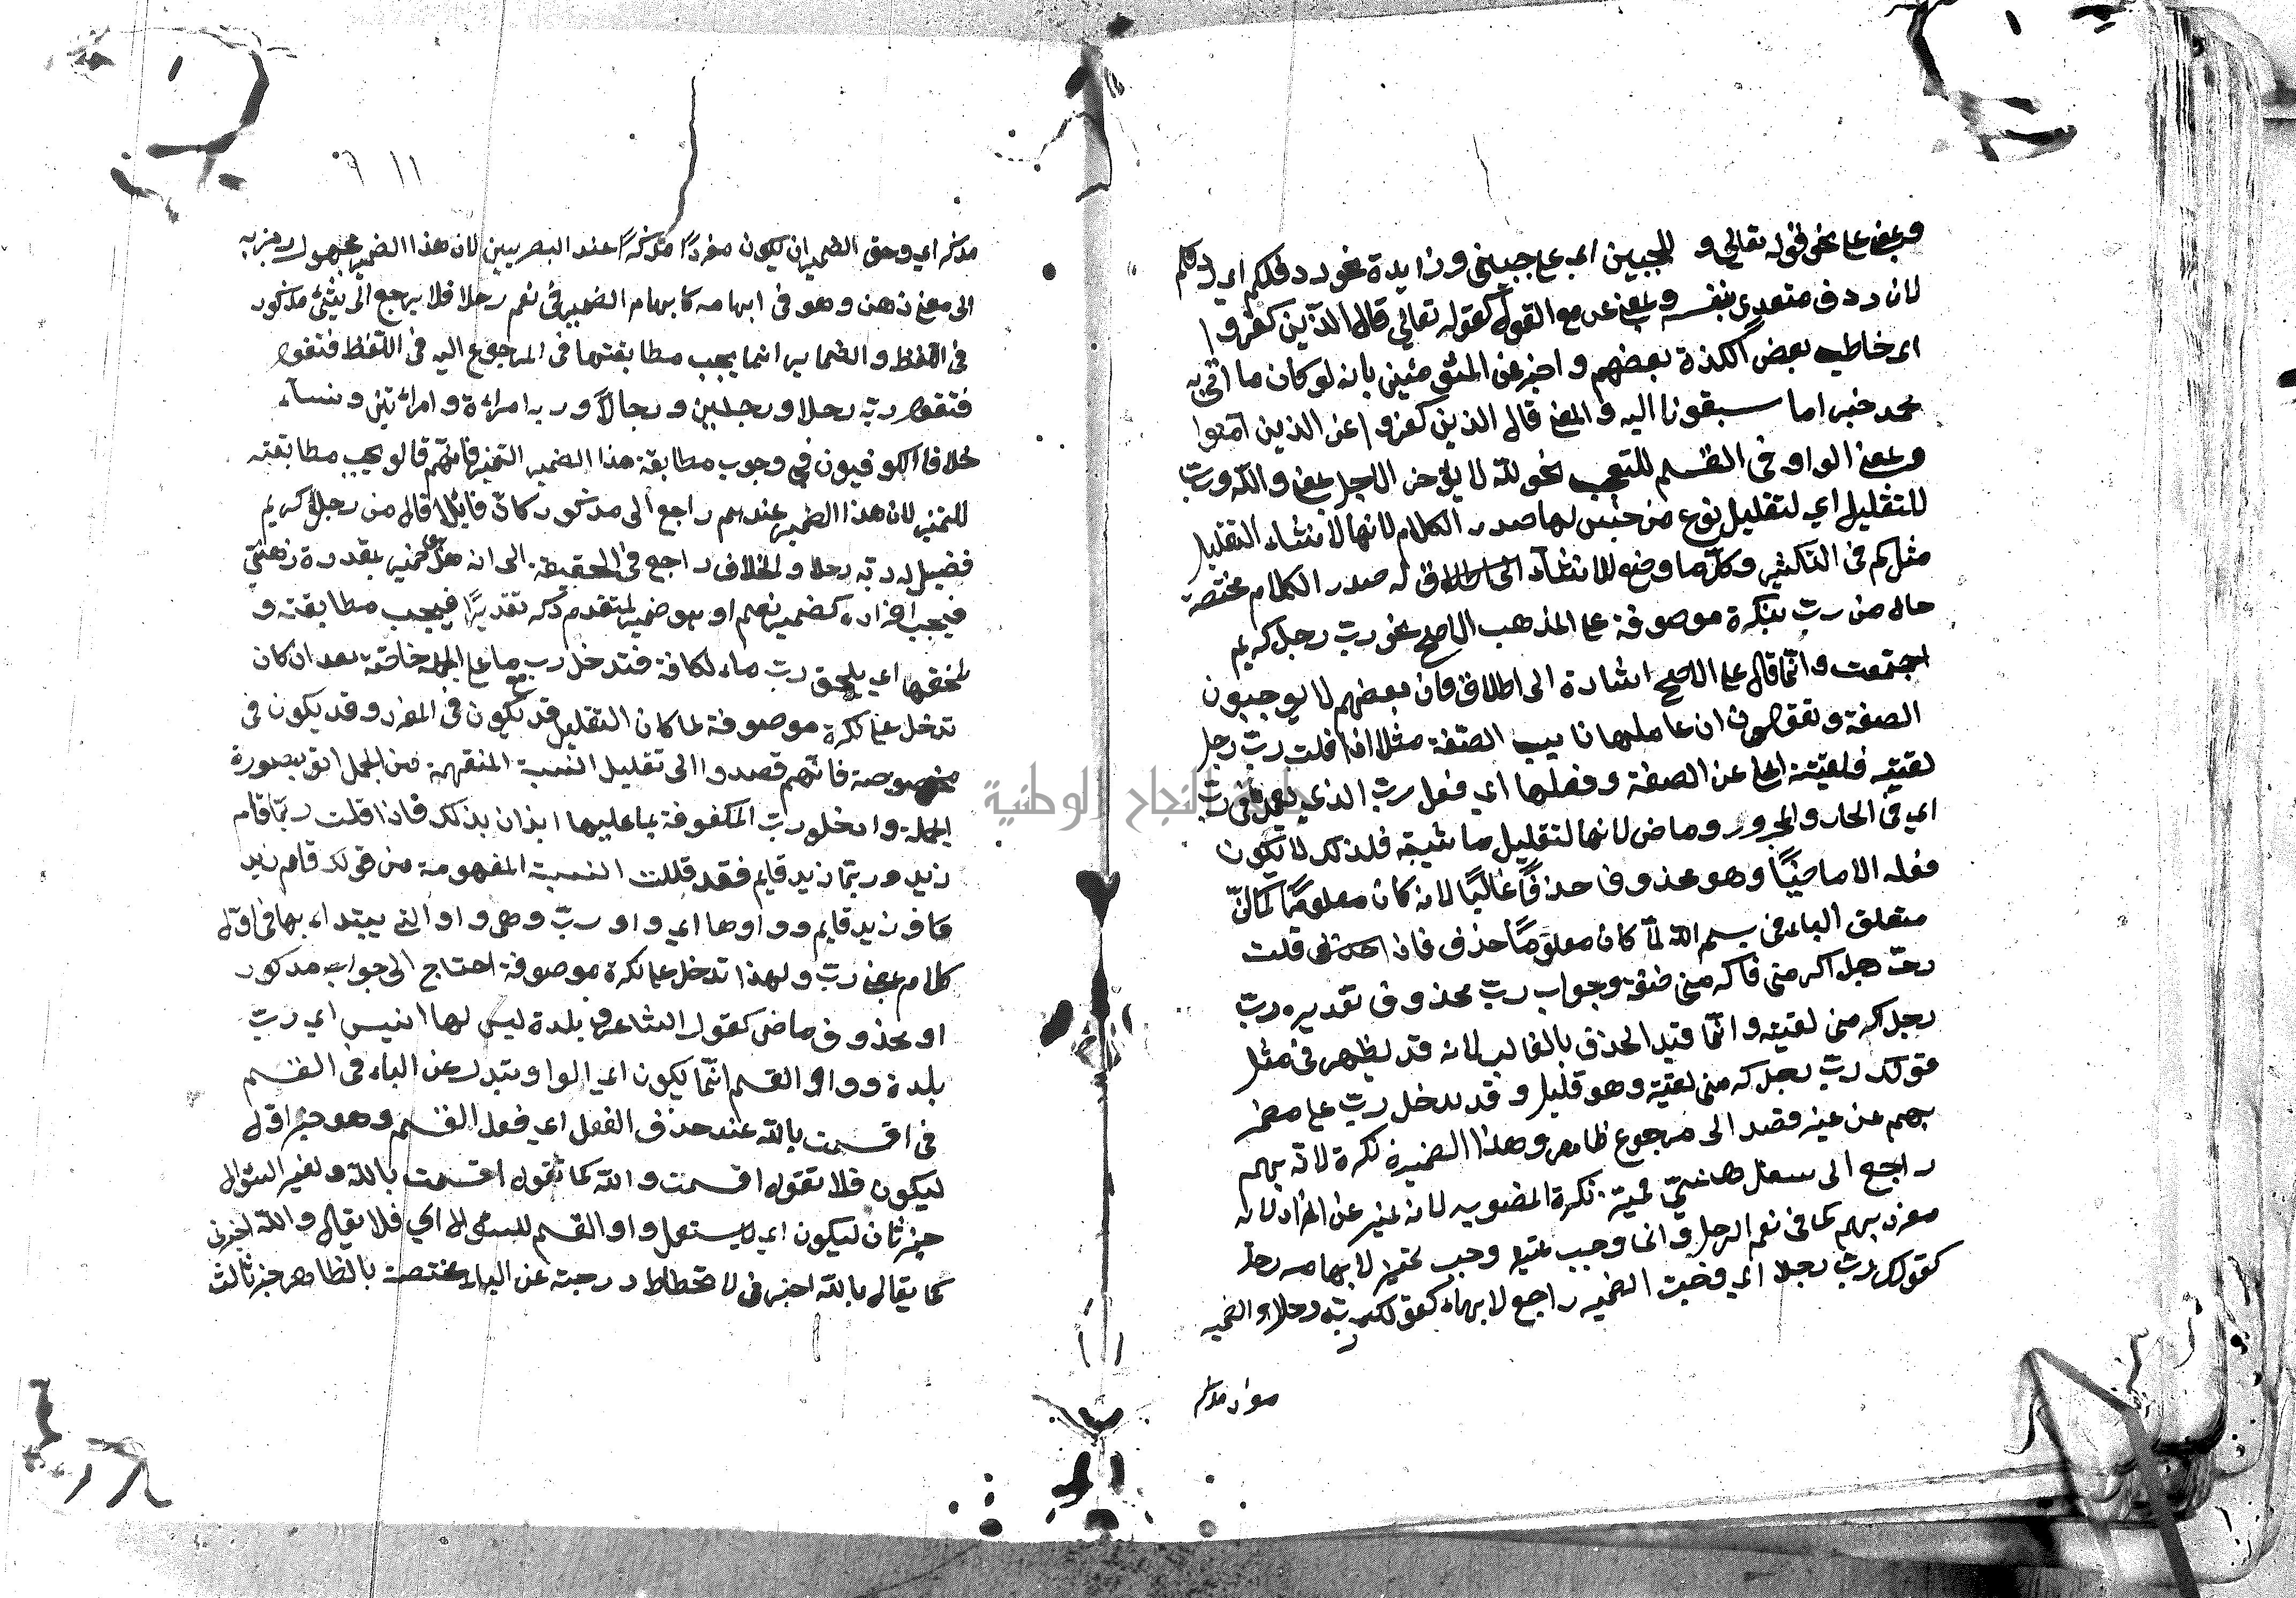 وبمعنى على نحو قوله تعالى و للجبين اي على جبينه وزايدة نحو ردف لكم اي ردفكم
لان ردف متعدي بنفسه وبمعنى عن مع القول كقوله تعالى قال الذين كفروا
اى خاطب بعض الكفرة بعضهم و اخبر عن المؤمنين بانه لو كان ما اتى به
محمد خيرا ما سبقونا اليه والمعنى قال الذين كفروا عن الذين آمنوا
وبمعنى الواو في القسم للتعجب نحو لله لا يؤخر الاجل بمعنى والله ورب
للتقليل اي لتقليل نوع من جنس لها صدر الكلام لانها لانشاء التقليل
مثل كم في التكثير وكل ما وضع للانشاء له صدر الكلام مختصة
حال من رب بنكرة موصوفة على المذهب الاصح نحو رب رجل كريم
اجتمعت وانما قال على الاصح اشارة الى اطلاق فان بعضهم لا يوجبون
الصفة و ان عاملها نايب الصفة مثلا اذا قلت رب رجل
لقيته فلقيته عن الصفة وفعلها اي فعل رب الذي
اي في الجار والمجرور وماض لانها لتقليل ما ثبت فلذلك لا تكون
فعله الا ماضيًا وهو محذوف حذفًا غالبًا لانه كان معلومًا كما ان
متعلق الباء في بسم الله لما كان معلومًا حذف فاذا قلت
رب رجل اكرمني وجواب رب محذوف تقديره رب
رجل كرمنى لقيته وانما قيد الحذف بالغالب لانه قد يظهر في مثل
قولك رب رجل كرمنى لقيته وهو قليل و قد يدخل رب على مضمر
مبهم من غير قصد الى مرجوع ظاهر وهذا الضمير نكرة لانه مبهم
راجع الى مميزة نكرة المنصوبه لانه عن
مفرد مبهم كما في نعم الرجل وانما وجب لابهامه
كقولك رب رجلا اي الضمير راجع كقولك ربه رجلا والضمير
مفرد مذكر
١١ ٩
مذكر اي وحق الضمير ان يكون مفردًا مذكرًا عند البصريين لان هذا الضمير مجهول
الى معنى ذهن وهو في ابهامه كابهام الضمير في نعم رجلا فلا يرجع الى شئ مذكور
في اللفظ والضماير انما يجب مطابقتها في المرجوع اليه في اللفظ فتقول
فتقول ربه رجلا ورجلين ورجالا وربه امراءة وامراءتين ونساء
خلافا الكوفيون في وجوب مطابقة هذا الضمير التميز فانهم قالو يجب مطابقته
للتميز لان هذا الضمير عندهم راجع الى مذكور كان قائلا قال من رجل كريم
فقيل له ربه رجلا والخلاف راجع في الحقيقة الى انه هل ذهني
فيجب افراده كضمير نعم او هو ضمير لمتقدم ذكر تقديرًا فيجب مطابقته و
تلحقها اي يلحق رب ماء لكافة فتدخل رب مع ما على الجملة خاصة بعد ان كان
تدخل على نكرة موصوفة لما كان التقليل قد يكون في المفرد وقد يكون في
مخصوصة فانهم قصدوا الى تقليل النسبة المنفهمة من الجمل اتو بصورة
الجملة وادخلو رب المكفوفة بما عليها ايذان بذلك فاذا قلت ربما قام
زيد وربما زيد قايم فقد قللت النسبة المفهومة من قولك قام زيد
زيد قايم وواوها اي واو رب وهي واو التى يبتداء بها في اول
كلام بمعنى رب ولهذا تدخل على نكرة موصوفة احتاج الى جواب مذكور
او محذوف ماض كقول الشاعر وبلدة ليس لها انيس اي رب
بلدة وواو القسم انما يكون اي الواو يتبدل عن الباء في القسم
في اقسمت بالله عند حذف الفعل اي فعل القسم وهو خبر اول
ليكون فلا يقول اقسمت والله كما يقول اقسمت بالله ولغير السؤال
خبر ثان ليكون اي لا يستعمل واو القسم للسؤال اي فلا يقال والله اخبرنى
كما يقال بالله اخبرني لانحطاط درجته عن الباء مختصة بالظاهر خبر ثالث
جامعة النجاح الوطنية